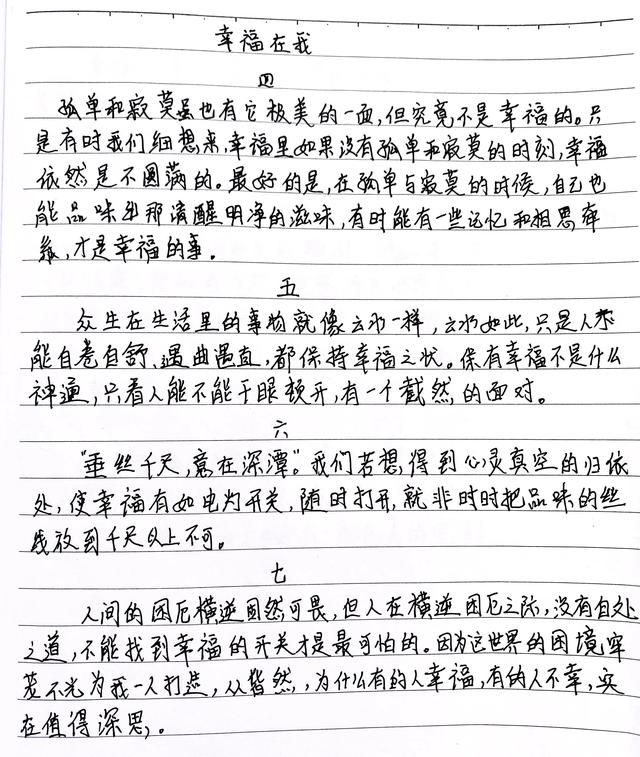 幸福在我
四
孤单和寂寞虽也有它极美的一面,但究竟不是幸福的。只
是有时我们细想来,幸福里如果没有孤单和寂寞的时刻,幸福
依然是不圆满的。最好的是,在孤单与寂寞的时候,自己也
能品味出那清醒明净的滋味,有时能有一些记忆和相思牵
系,才是幸福的事。
五
众生在生活里的事物就像云水一样,云水如此,只是人不
能自卷自舒、遇曲遇直,都保持幸福之状。保有幸福不是什么
神通,只看人能不能千眼顿开,有一个截然的面对。
六
"垂丝千尺,意在深潭"。我们若想得到心灵真空的归依
处,使幸福有如电灯开关,随时打开,就非时时把品味的丝
线放到千尺以上不可。
七
人间的困厄横逆固然可畏,但人在横逆困厄之际,没有自处
之道,不能找到幸福的开关才是最可怕的。因为这世界的困境牢
笼不光为我一人打造,人皆然,为什么有的人幸福,有的人不幸,实
在值得深思。